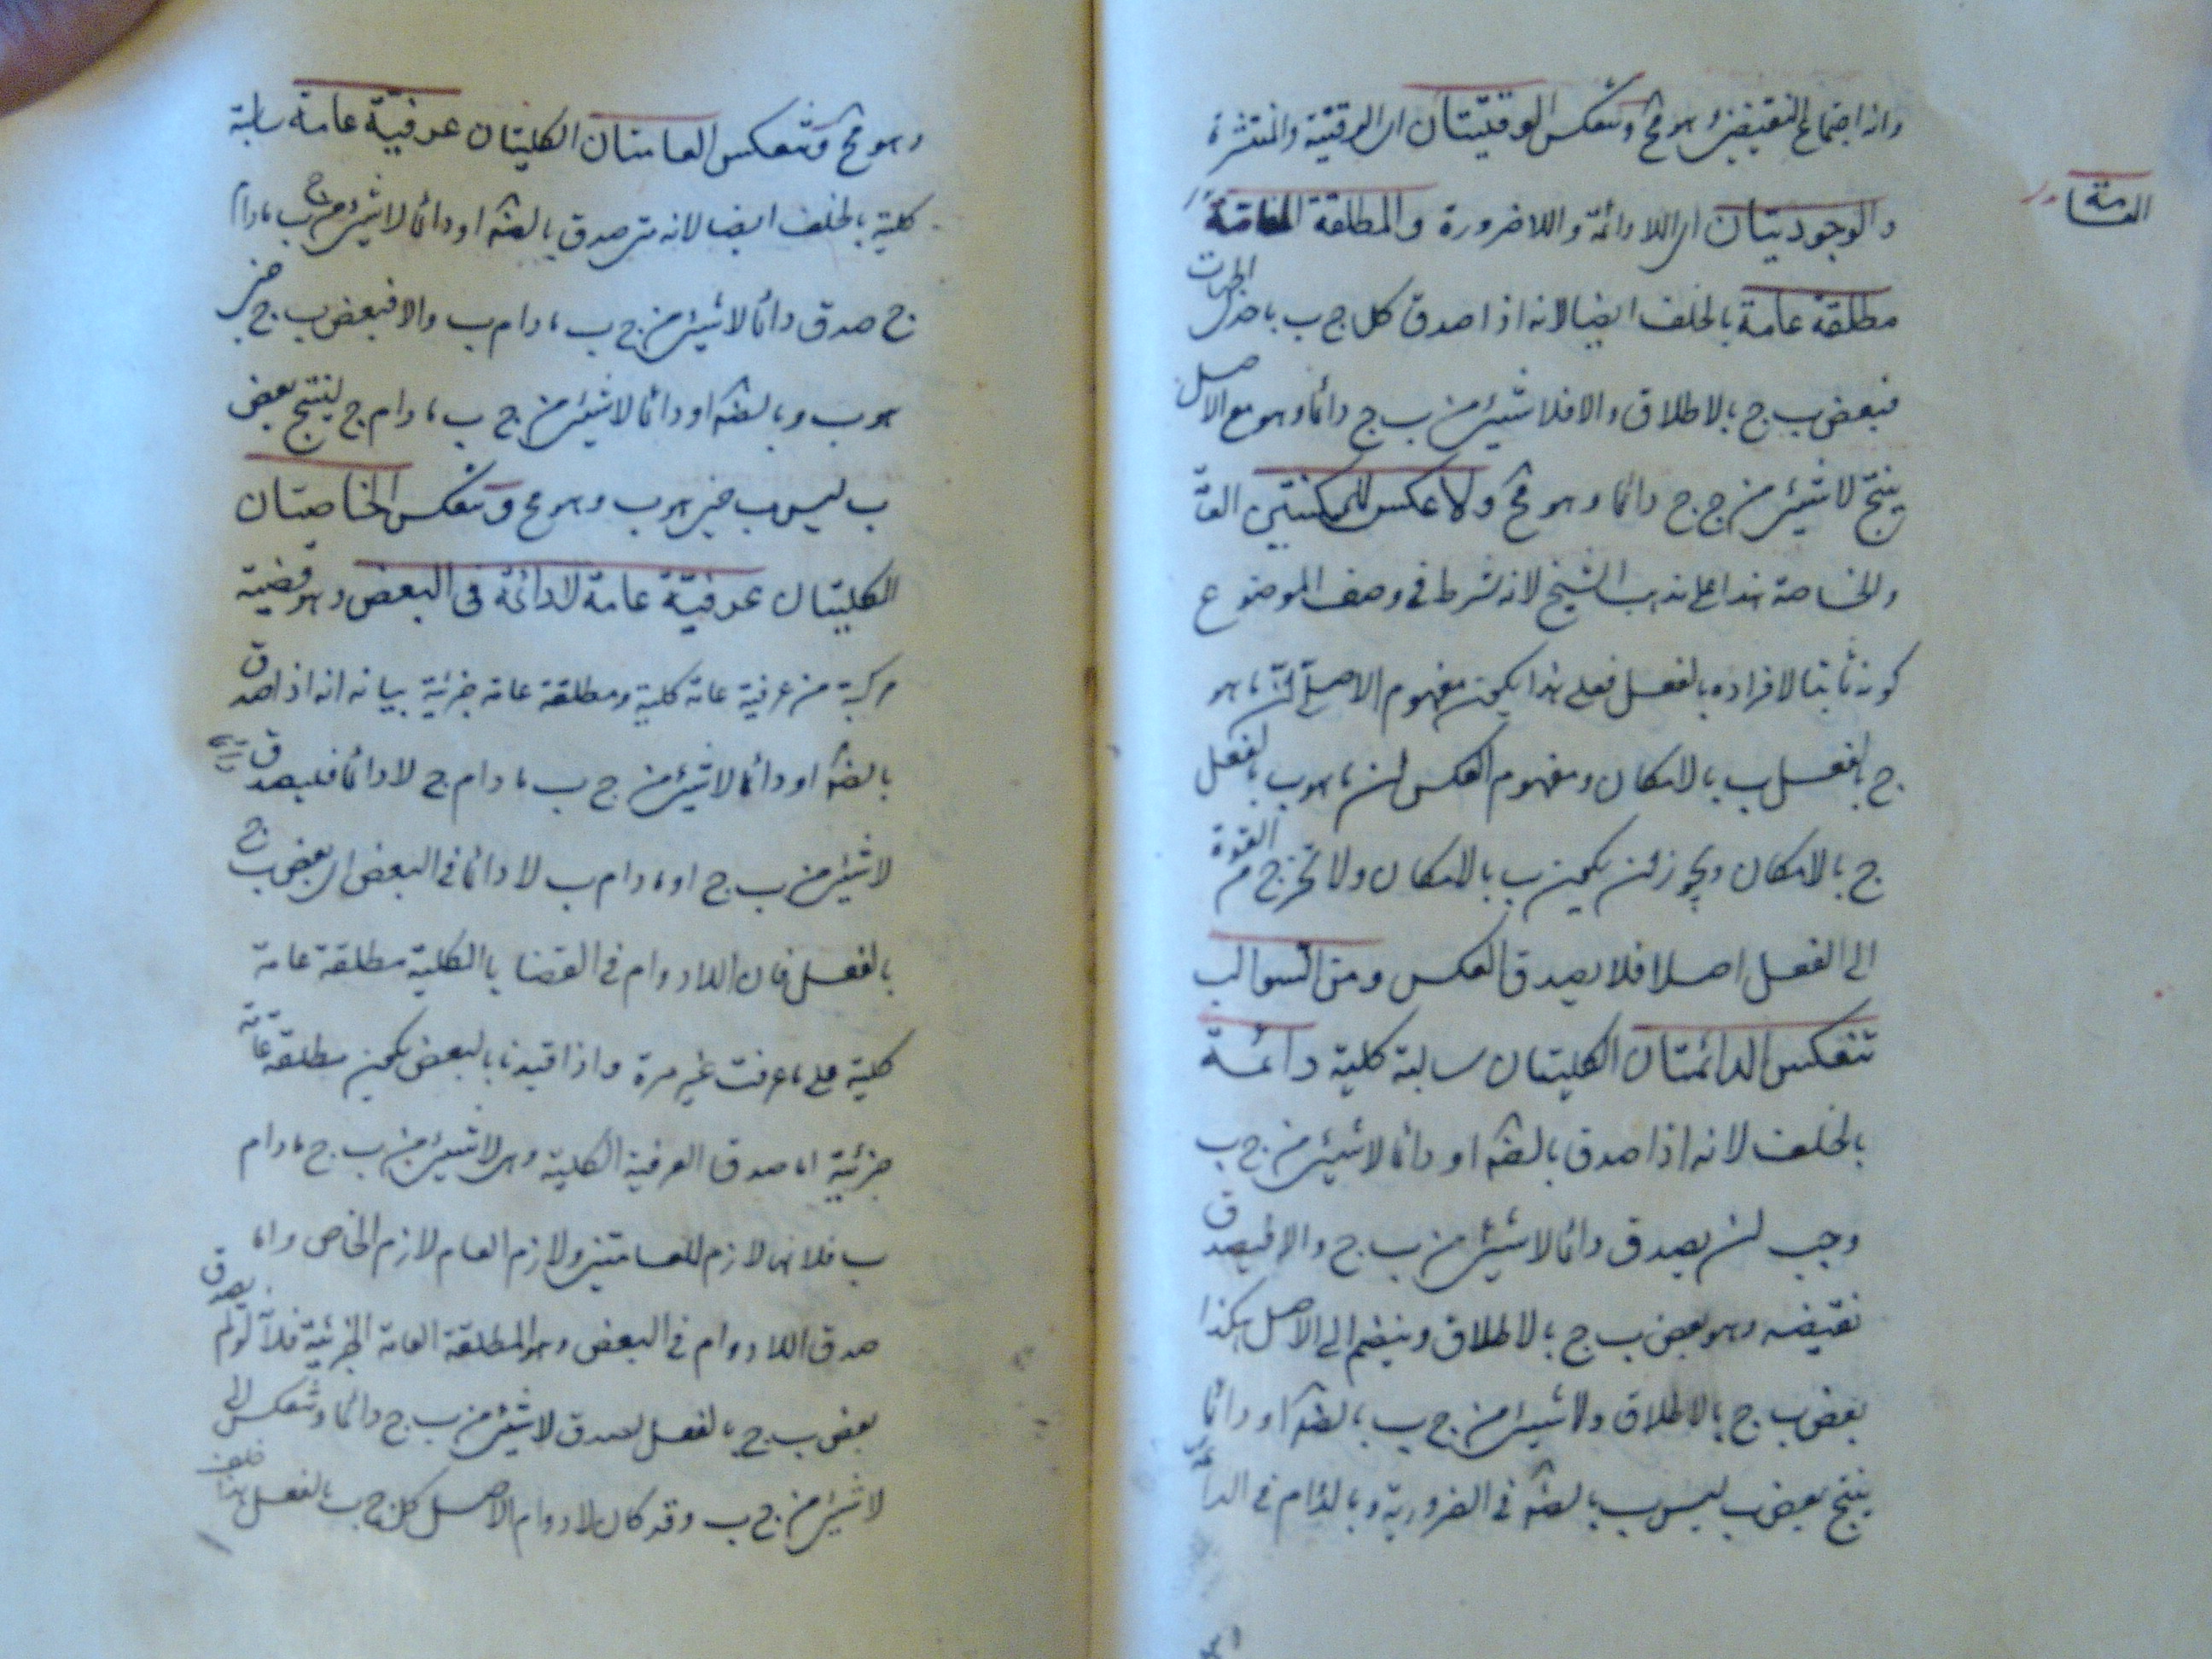 وانه اجتماع النقيضين وهو مح وتنعكس الوقتيتان اى الوقتية والمنتشرة
والوجوديتان اى اللادائمة واللاضرورة والمطلقة العامة
العامة
مطلقة عامة بالخلف ايضا لانه اذا صدق كل ج ب باحدى الجهات
فبعض ب ج بالاطلاق والا فلا شيئ من ب ج دائما وهو مع الاصل
ينتج لا شيئ من ج ج دائما وهو مح ولا عكس للممكنتين العامة
والخاصة هذا على مذهب الشيخ لانه شرط فى وصف الموضوع
كونه ثابتا لافراده بالفعل فعلى هذا يكون مفهوم الاصل ان ما هو
ج بالفعل ب بالامكان ومفهوم العكس ان ما هو ب بالفعل
ج بالامكان ويجوز ان يكون ب بالامكان ولا تخرج من القوة
الى الفعل اصلا فلا يصدق العكس ومن السوالب
تنعكس الدائمتان الكليتان سالبة كلية دائمة
بالخلف لانه اذا صدق بالضرة او دائما لا شيئ من ج ب
وجب ان يصدق دائما لا شيئ من ب ج والا فيصدق
نقيضه وهو بعض ب ج بالاطلاق وينضم الى الاصل هكذا
بعض ب ج بالاطلاق ولا شيئ من ج ب بالضرة او دائما
ينتج بعض ب ليس ب بالضرة فى الضرورية وبالدوام فى
وهو مح وتنعكس العامتان الكليتان عرفية عامة سالبة
كلية بالخلف ايضا لانه متى صدق بالضرة او دائما لا شيئ من ج ب مادام
ج صدق دائما لا شيئ من ب ج مادام ب والا فبعض ب ج حين
هو ب وبالضرة او دائما لا شيئ من ج ب مادام ج ينتج بعض
ب ليس ب حين هو ب وهو مح وتنعكس الخاصتان
الكليتان عرفية عامة لادائمة فى البعض وهو قضية
مركبة من عرفية عامة كلية ومطلقة عامة جزئية بيانه انه اذا صدق
بالضرة او دائما لا شيئ من ج ب مادام ج لا دائما فليصدق
لا شيئ من ب ج مادام ب لا دائما فى البعض اى بعض ب ج
بالفعل فان اللادوام فى القضايا الكلية مطلقة عامة
كلية على ما عرفت غير مرة واذا قيدنا بالبعض يكون مطلقة عامة
جزئية اما صدق العرفية الكلية وهى لا شيئ من ب ج مادام
ب فلانها لازم للعامتين ولازم العام لازم الخاص واما
صدق اللادوام فى البعض وهو المطلقة العامة الجزئية فلانه لو لم يصدق
بعض ب ج بالفعل لصدق لا شيئ من ب ج دائما وتنعكس الى
لا شيئ من ج ب وقد كان لادوام الاصل كل ج ب بالفعل هذا خلف